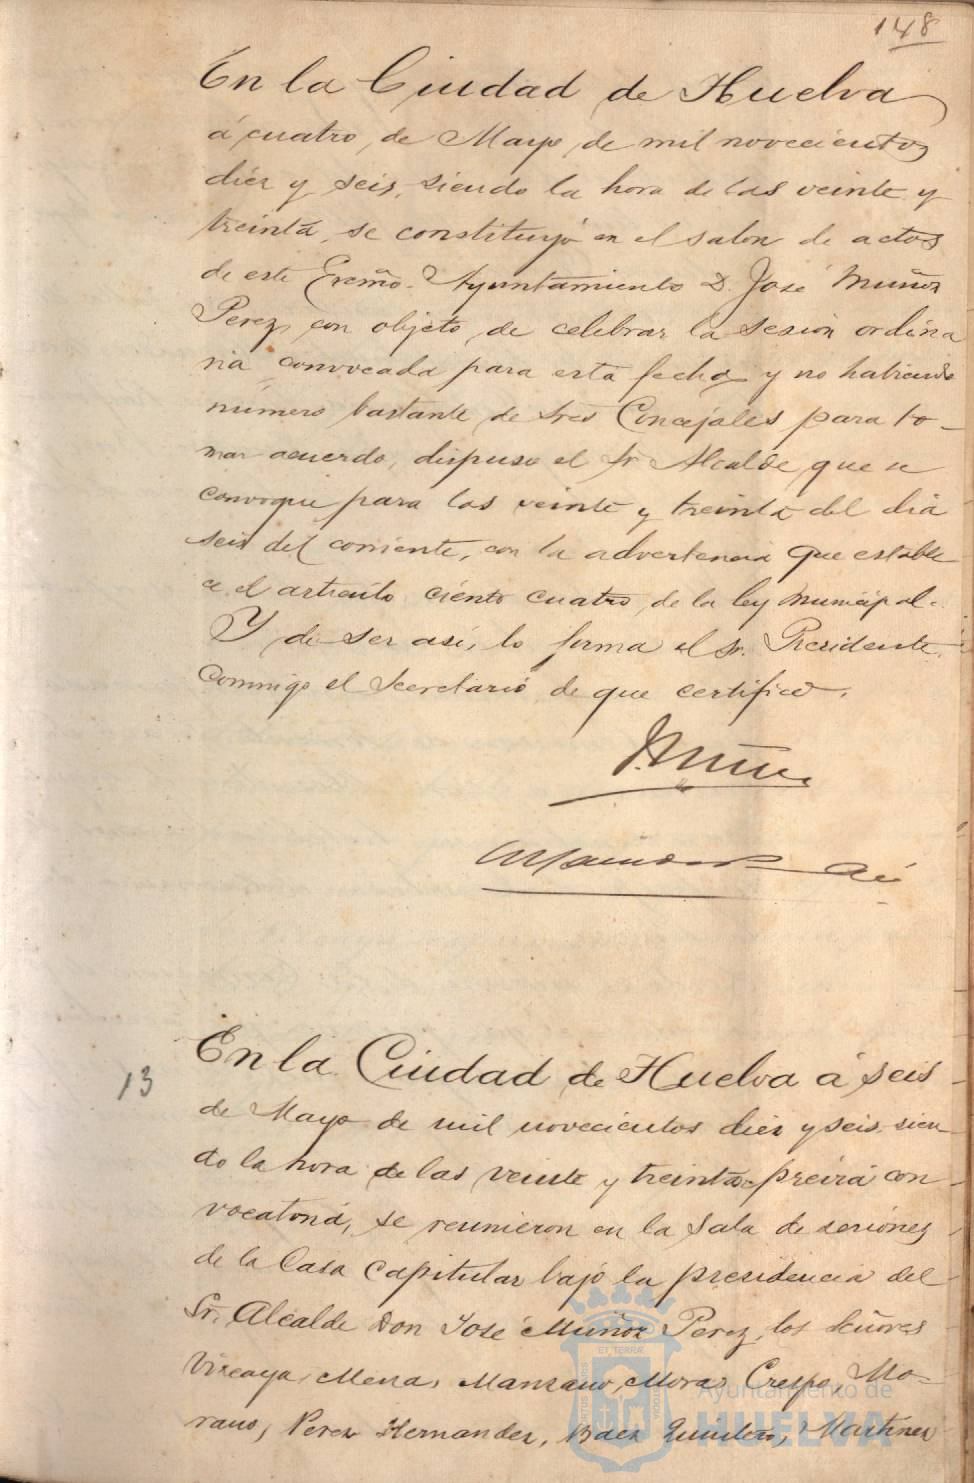 148
En la Ciudad de Huelva
á cuatro, de Mayo de mil novecientos
diez y seis, siendo la hora de las veinte y
treinta, se constituyó en el salon de actos
de este Excmo. Ayuntamiento D. José Muñoz
Perez, con objeto de celebrar la sesión ordina
ria convocada para esta fecha y no habiendo
número bastante de Sres Concejales para to-
mar acuerdo, dispuso el Sr Alcalde que se
convoque para las veinte y treinta del dia
seis del corriente, con la advertencia que estable
ce el artículo ciento cuatro, de la ley Municipal.
Y de ser así, lo firma el Sr. Presidente
Conmigo el Secretario de que certifico.
J. Muñoz
13
En la Ciudad de Huelva á seis
de Mayo de mil novecientos diez y seis sien
do la hora de las veinte y treinta, previa con
vocatoria, se reunieron en la Sala de sesiones
de la Casa Capitular bajo la presidencia del
Sr. Alcalde Don José Muñoz Perez, los Señores
Vizcaya, Mena, Manzano, Mora, Crespo, Mo-
rano, Perez Hernandez, Baez Quintero, Martinez
Ayuntamiento de
HUELVA